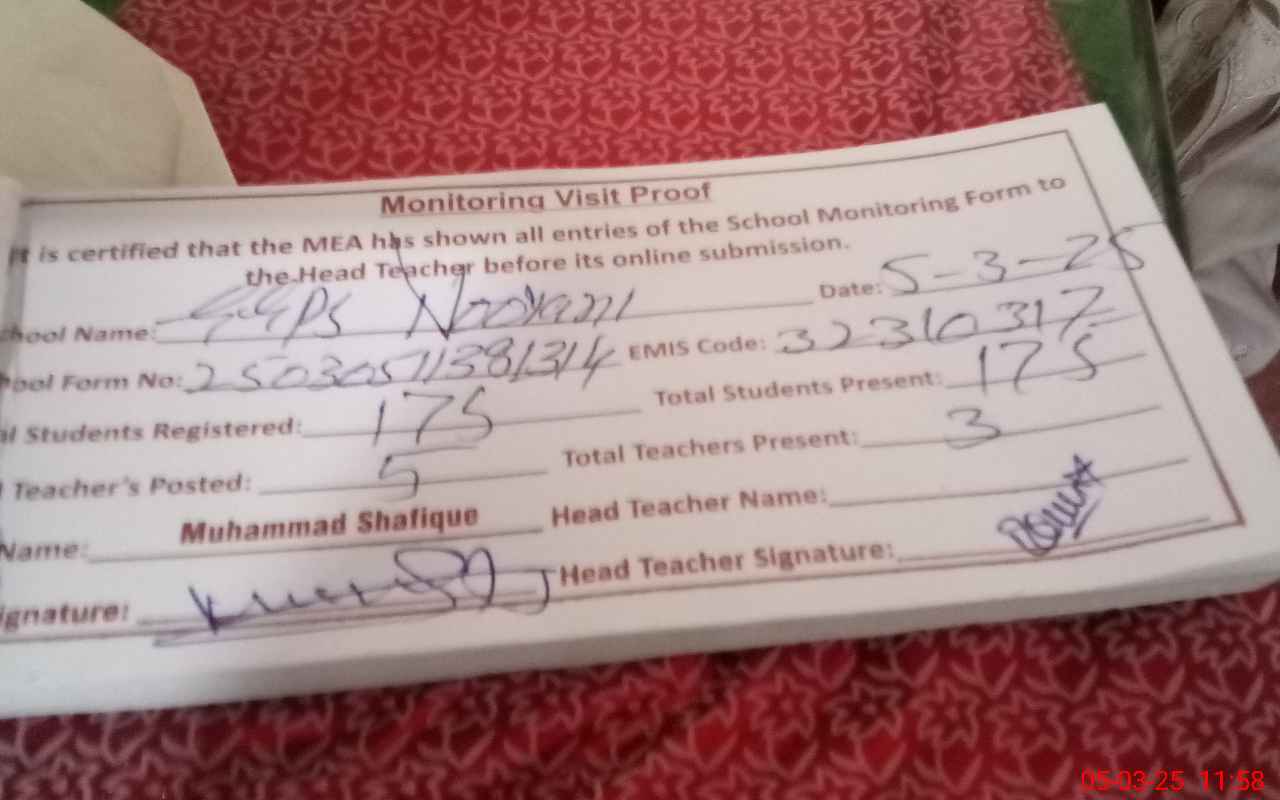 Monitoring Visit Proof
It is certified that the MEA has shown all entries of the School Monitoring Form to
the Head Teacher before its online submission.
hool Name: GGPS Noorani Date: 5-3-25
ool Form No: 25030571381314 EMIS Code: 32310317
al Students Registered: 175 Total Students Present: 175
Teacher's Posted: 5 Total Teachers Present: 3
Name: Muhammad Shafique Head Teacher Name:
ignature: Head Teacher Signature:
05-03-25 11:58